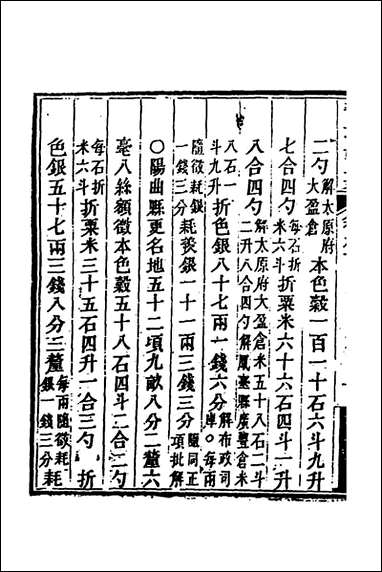 二勺解太原府大盈倉本色穀一百一十石六斗九升
七合四勺每石折米六斗折粟米六十六石四斗一升
八合四勺解太原府大盈倉米五十八石二斗二升八合四勺解鳳臺縣廣豐倉米
八石一斗九升折色銀八十七兩一錢六分解布政司庫○每兩
隨徵耗銀一錢三分耗羨銀一十一兩三錢三分隨同正項批解
○陽曲縣更名地五十二頃九畝八分二釐六
毫八絲額徵本色穀五十八石四斗二合二勺
每石折米六斗折粟米三十五石四升一合三勺折
色銀五十七兩三錢八分三釐每兩隨徵耗銀一錢三分耗